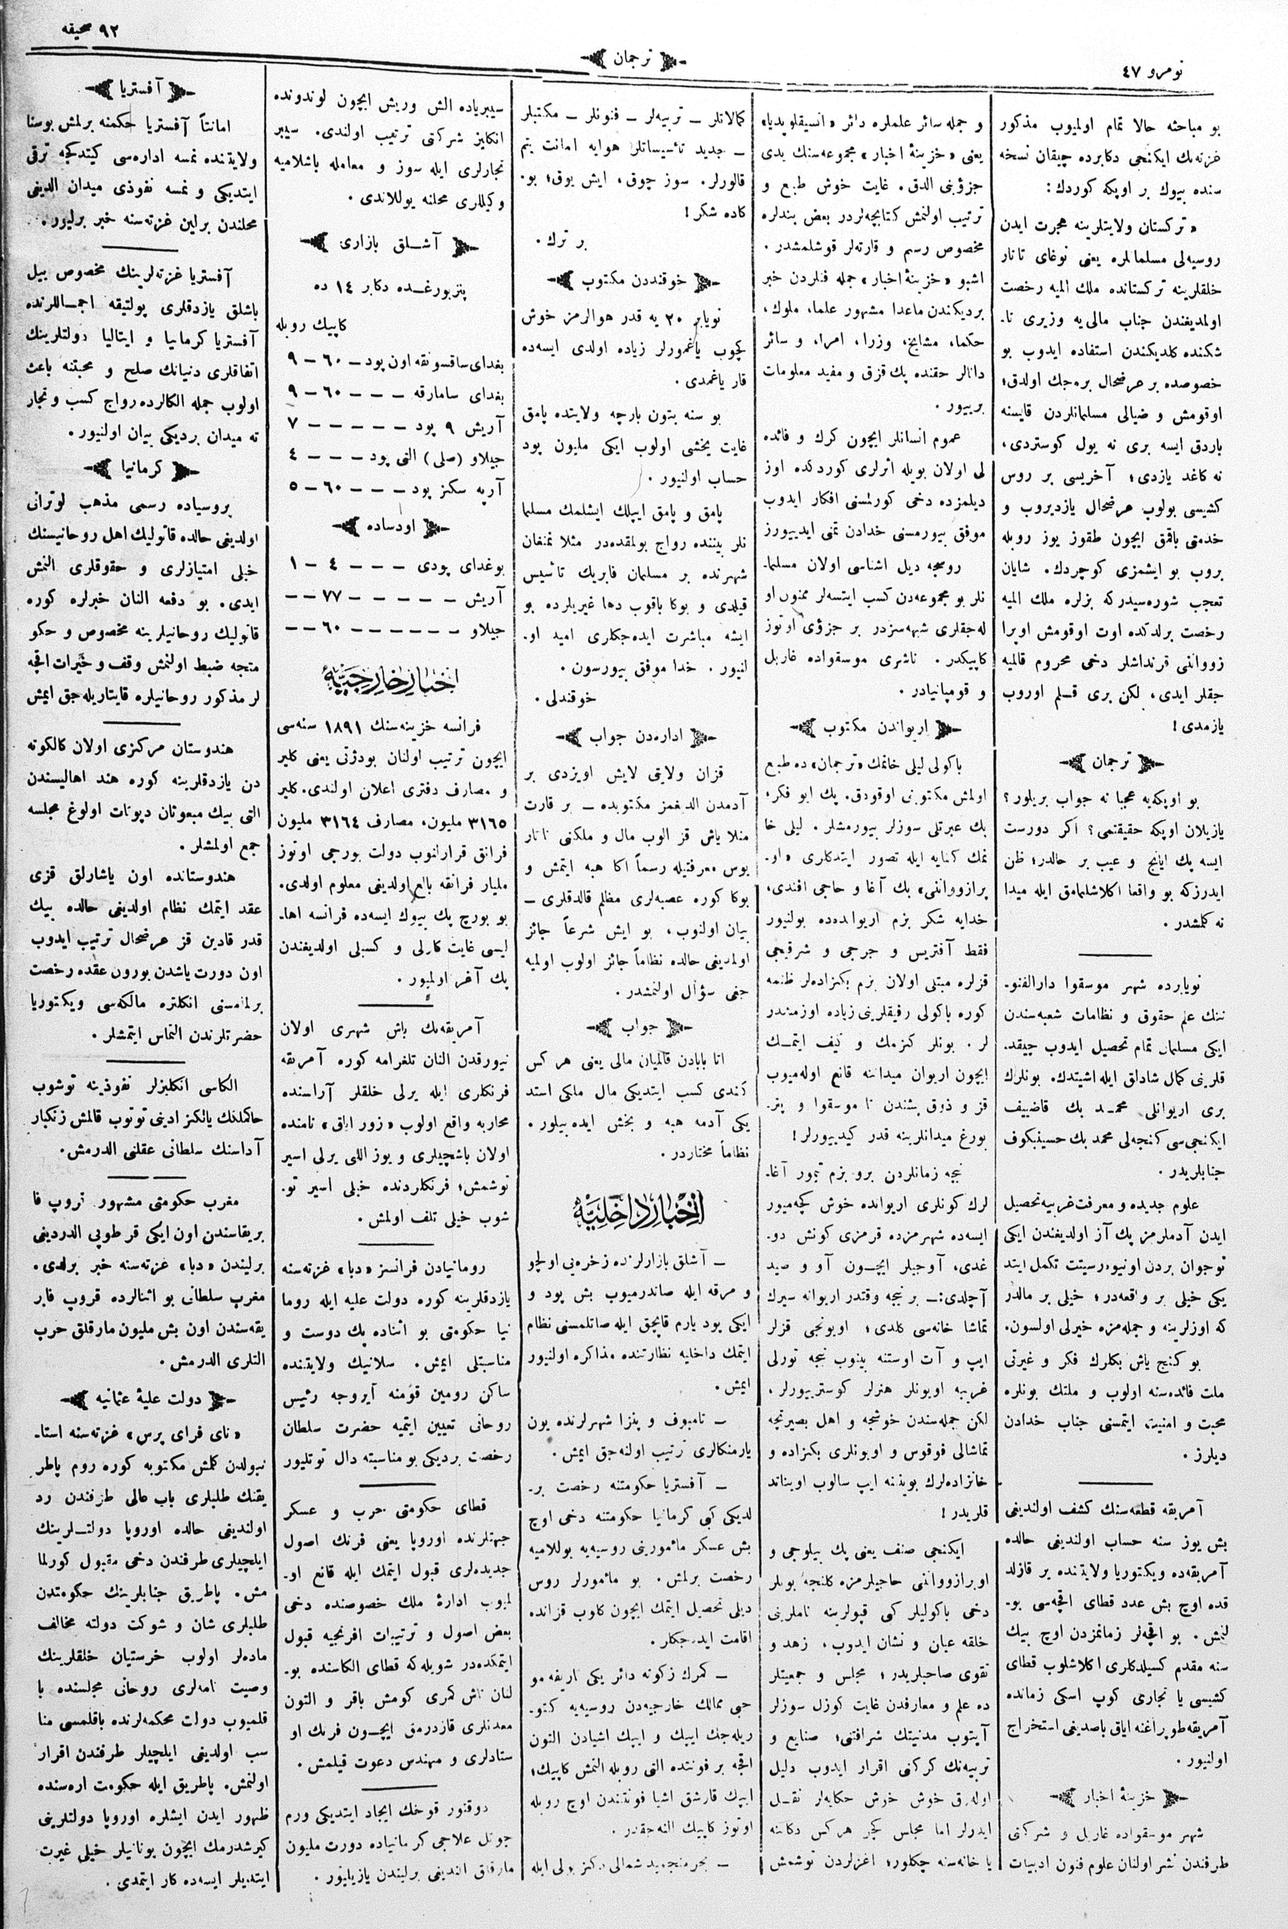 نومرو ٤٧
ترجمان
٩٢ صحیفه
بو مباحثه حالا تمام اولمیوب مذکور
غزته‌نك ایکنجی دکابرده چیقان نسخه
سنده بیوك بر اوپکه کوردك:
« ترکستان ولایتلرینه هجرت ایدن
روسیه‌لی مسلمانلره یعنی نوغای تاتار
خلقلرینه ترکستانده ملك المیه رخصت
اولمدیغندن جناب مالیه وزیری تا۔
شکنده کلدیکندن استفاده ایدوب بو
خصوصده بر عرضحال بره‌جك اولدق؛
اوقومش و ضیالی مسلمانلردن قایسنه
باردق ایسه بری نه یول کوستردی،
نه کاغد یازدی؛ آخریسی بر روس
کشیسی بولوب عرضحال یازدیروب و
خدمتی باقمق ایچون طقوز یوز روبله
بروب بو ایشمزی کوچردك. شایان
تعجب شوره‌سیدرکه بزلره ملك المیه
رخصت برلدکده اوت اوقومش اوبرا
زوواننی قرنداشلر دخی محروم قالمیه
جقلر ایدی، لکن بری قلم اوروب
یازمدی!
ترجمان
بو اوپکه‌یه عجبا نه جواب بریلور؟
یازیلان اوپکه حقیقتمی؟ اکر دورست
ایسه پك ایانج و عیب بر حالدر؛ ظن
ایدرزکه بو واقعا اکلاشلمامق ایله میدا
نه کلمشدر.
نویابرده شهر موسقوا دارالفنو۔
ننك علم حقوق و نظامات شعبه‌سندن
ایکی مسلمان تمام تحصیل ایدوب چیقد۔
قلرینی کمال شاداق ایله اشیتدك. بونلرك
بری اریوانلی محمد بك قاضییف
ایکنجی‌سی کنجه‌لی محمد بك حسینبکوف
جنابلریدر.
علوم جدیده و معرفت غربیه تحصیل
ایدن آدملرمز پك آز اولدیغندن ایکی
نوجوان بردن اونیویرسیتت تکمل ایتد
یکی خیلی بر واقعه‌در؛ خیلی بر مالدر
که اوزلرینه و جمله‌مزه خیرلی اولسون.
بو کنج یاش بکلرك فکر و غیرتی
ملت فائده‌سنه اولوب و ملتك بونلره
محبت و امنیتی ایتمسنی جناب خدادن
دیلرز.
آمریقه قطعه‌سنك کشف اولندیغی
بش یوز سنه حساب اولندیغی حالده
آمریقه‌ده ویکتوریا ولایتنده بر قازلد
قده اوچ بش عدد قطای اقچه‌سی بو۔
لنمش. بو اقچه‌لر زمانمزدن اوچ بیك
سنه مقدم کسیلدکلری اکلاشلوب قطای
کشیسی یا تجاری کوپ اسکی زمانده
آمریقه طوپراغنه ایاق باصدیغی استخراج
اولنیور.
خزینهٔ اخبار
شهر موسقواده غاربل و شرکتی
طرفندن نشر اولنان علوم فنون ادبیات
و جمله سائر علملره دائر « انسیقلوبدیا »
یعنی « خزینهٔ اخبار » مجموعه‌سنك یدی
جزؤینی الدق. غایت خوش طبع و
ترتیب اولنمش کتابچه‌لردر بعض بندلره
مخصوص رسم و قارته‌لر قوشلمشدر.
اشبو « خزینهٔ اخبار » جمله فنلردن خبر
بردیکندن ماعدا مشهور علما، ملوك،
حکما، مشایخ، وزرا، امرا، و سائر
دانالر حقنده پك قزق و مفید معلومات
بریور.
عموم انسانلر ایچون کرك و فائده
لی اولان بویله اثرلری کوردکده اوز
دیلمزده دخی کورلمسنی افکار ایدوب
موفق بیورمسنی خدادن تمنی ایدییورز
روسجه دیل اشناسی اولان مسلما۔
نلر بو مجموعه‌دن کسب ایتسه‌لر ممنون او
له‌جقلری شبهه‌سزدر بر جزؤی اوتوز
کاپیکدر. ناشری موسقواده غاربل
و قومپانیادر.
اریواندن مکتوب
باکولی لیلی خانمك « ترجمان » ده طبع
اولمش مکتوبنی اوقودق. پك ابو فکر،
پك عبرتلی سوزلر بیورمشلر. لیلی خا
نمك کنایه ایله تصور ایتدکاری « او۔
پرازوواننی » بك آغا و حاجی افندی،
خدایه شکر بزم اریوانده‌ده بولنیور
فقط آقتریس و جرجی و شرقیجی
قزلره مبتلی اولان بزم بکزاده‌لر ظنمه
کوره باکولی رفیقلرینی زیاده اوزمندر
لر. بونلر کزمك و کیف ایتمك
ایچون اریوان میداننه قانع اوله‌میوب
قز و ذوق پشندن تا موسقوا و پتر۔
بورغ میدانلرینه قدر کیدییورلر!
نیجه زمانلردن برو بزم تیمور آغا۔
لرك کونلری اریوانده خوش کچه‌میور
ایسه‌ده شهرمزده قرمزی کونش دو۔
غدی، آوجیلر ایچون آو و صید
آچلدی: ـ بر نیجه وقتدر اریوانه سیرك
تماشا خانه‌سی کلدی؛ اویونجی قزلر
ایپ و آت اوستنه بینوب نیجه تورلی
غریبه اویونلر هنرلر کوستریبورلر،
لکن جمله‌سندن خوشجه و اهل بصیرتجه
تماشالی فوقوس و اویونلری بکزاده و
خانزاده‌لرك بویننه ایپ سالوب اویناتد
قلریدر!
ایکنجی صنف یعنی پك بیلوجی و
اوبرازوواننی حاجیلرمزه کلنجه بونلر
دخی باکولیلر کبی قبولرینه ناملرینی
خلقه عیان و نشان ایدوب، زهد و
تقوی صاحبلریدر؛ مجلس و جمعیتلر
ده علم و معارفدن غایت کوزل سوزلر
آیتوب مدنیتك شرافتنی؛ صنایع و
تربیه‌نك کرکنی اقرار ایدوب دلیل
اوله‌رق خوش خوش حکایه‌لر نقل
ایدرلر اما مجلس کچر هرکس دکاننه
یا خانه‌سنه چکلور؛ اغزلردن توشمش
کمالاتلر ـ تربیه‌لر ـ فنونلر ـ مکتبلر
ـ جدید تأسیساتلر هوایه امانت یتم
قالورلر. سوز چوق، ایش یوق؛ بو۔
کاده شکر!
بر ترك.
خوقنددن مکتوب
نویابر ٢٠ یه قدر هوالرمز خوش
کچوب یاغمورلر زیاده اولدی ایسه‌ده
قار یاغمدی.
بو سنه بتون بارچه ولایتده پامق
غایت یخشی اولوب ایکی ملیون پود
حساب اولنیور.
پامق و پامق ایپلك ایشلمك مسلما
نلر بیننده رواج بولمقده‌در مثلا نمنغان
شهرنده بر مسلمان فابریك تأسیس
قیلدی و بوکا باقوب دها غیریلرده بو
ایشه مباشرت ایده‌جکلری امید او۔
لنیور. خدا موفق بیورسون.
خوقندلی.
اداره‌دن جواب
قزان ولایتی لایش اویزدی بر
آدمدن الدیغمز مکتوبده ـ بر قارت
منلا یاش قز الوب مال و ملکنی تاتار
یوس معرفتیله رسماً اکا هبه ایتمش و
بوکا کوره عصبه‌لری مظلم قالدقلری ـ
بیان اولنوب، بو ایش شرعاً جائز
اولمدیغی حالده نظاماً جائز اولوب اولمیه
جغی سؤال اولنمشدر.
جواب
اتا بابادن قالمیان مالی یعنی هر کس
کندی کسب ایتدیکی مال ملکی استد
یکی آدمه هبه و بخش ایده‌بیلور.
نظاماً مختاردر.
اخبار داخلیه
ـ آشلق بازارلرنده زخره‌یی اولچو
و مرقه ایله صاتدرمیوب بش پود و
ایکی پود یارم قاپچق ایله صاتلمسنی نظام
ایتمك داخلیه نظارتنده مذاکره اولنیور
ایمش.
ـ تامبوف و پنزا شهرلرنده یون
یارمنکالری ترتیب اولنه‌جق ایمش.
ـ آفستریا حکومتنه رخصت بر۔
لدیکی کبی کرمانیا حکومتنه دخی اوچ
بش عسکر مأمورینی روسیه‌یه یوللامیه
رخصت برلمش. بو مأمورلر روس
دیلی تحصیل ایتمك ایچون کلوب قزانده
اقامت ایدرجکلر.
ـ کمرك زکوته دائر یکی تاریفه مو
جبی ممالك خارجیه‌دن روسیه‌یه کتو۔
ریله‌جك ایپك و ایپك اشیادن التون
اقچه بر فونتده التی روبله التمش کاپیك؛
ایپك قارشق اشیا فونتندن اوچ روبله
اوتوز کاپیك النه‌جقدر.
ـ بحر منجمید شمالی دکز یولی ایله
سیبریاده الش وریش ایچون لوندونده
انکلیز شرکتی ترتیب اولندی. سیبر
تجارلری ایله سوز و معامله باشلامیه
وکیللری محلنه یوللاندی.
آشلق بازاری
پتربورغده دکابر ١٤ ده
کاپیك روبله
بغدای ساقسونقه اون پود ـ ٦٠ ـ ٩
بغدای سامارقه ـ ـ ـ ٦٠ ـ ٩
آریش ٩ پود ـ ـ ـ ـ ـ ٧
جیلاو (صلی) التی پود ـ ـ ـ ٤
آرپه سکز پود ـ ـ ـ ٦٠ ـ ٥
اودساده
بوغدای پودی ـ ـ ـ ٤ ـ ١
آریش ـ ـ ـ ـ ـ ٧٧ ـ ـ
جیلاو ـ ـ ـ ـ ـ ـ ٦٠ ـ ـ
اخبار خارجیه
فرانسه خزینه‌سنك ١٨٩١ سنه‌سی
ایچون ترتیب اولنان بودژتی یعنی کلیر
و مصارف دفتری اعلان اولندی. کلیر
٣١٦٥ ملیون، مصارف ٣١٦٤ ملیون
فرانق قرارلنوب دولت بورجی اوتوز
ملیار فرانقه بالغ اولدیغی معلوم اولدی.
بو بورج پك بیوك ایسه‌ده فرانسه اها۔
لیسی غایت کارلی و کسبلی اولدیغندن
پك آغر اولمیور.
آمریقه‌نك باش شهری اولان
نیورقدن النان تلغرامه کوره آمریقه
فرنکلری ایله یرلی خلقلر آراسنده
محاربه واقع اولوب « زور ایاق » نامنده
اولان باشچیلری و یوز اللی یرلی اسیر
توشمش؛ فرنکلردنده خیلی اسیر تو۔
شوب خیلی تلف اولمش.
رومانیادن فرانسز « دبا » غزته‌سنه
یازدقلرینه کوره دولت علیه ایله روما
نیا حکومتی بو اثناده پك دوست و
مناسبتلی ایمش. سلانیك ولایتنده
ساکن رومین قومنه آیروجه رئیس
روحانی تعیین ایتمیه حضرت سلطان
رخصت بردیکی بو مناسبته دال توتلیور
قطای حکومتی حرب و عسکر
جهتلرنده اوروپا یعنی فرنك اصول
جدیده‌لری قبول ایتمك ایله قانع او۔
لمیوب ادارهٔ ملك خصوصنده دخی
بعض اصول و ترتیبات افرنجیه قبول
ایتمکده‌در شویله‌که قطای الکاسنده بو۔
لنان تاش کمری کومش باقر و التون
معدنلری قازدرمق ایچون فرنك او
ستادلری و مهندس دعوت قیلمش.
دوقتور قوخك ایجاد ایتدیکی ورم
جونل علاجی کرمانیاده دورت ملیون
مارقاق اندیغی برلیندن یازیلیور.
آفستریا
امانتاً آفستریا حکمنه برلمش بوسنا
ولایتنده نمسه اداره‌سی کیتدکچه ترقی
ایتدیکی و نمسه نفوذی میدان الدیغی
محلندن برلین غزته‌سنه خبر برلیور.
آفستریا غزته‌لرینك مخصوص ییل
باشلق یازدقلری پولتیقه اجمالرنده
آفستریا کرمانیا و ایتالیا دولتلرینك
اتفاقلری دنیانك صلح و محبتنه باعث
اولوب جمله الکالرده رواج کسب و تجار
ته میدان بردیکی بیان اولنیور.
کرمانیا
پروسیاده رسمی مذهب لوترانی
اولدیغی حالده قاتولیك اهل روحانیسنك
خیلی امتیازلری و حقوقلری النمش
ایدی. بو دفعه النان خبرلره کوره
قاتولیك روحانیلرینه مخصوص و حکو
متجه ضبط اولنمش وقف و خیرات اقچه
لر مذکور روحانیلره قایتاریله‌جق ایمش
هندوستان مرکزی اولان کالکوته
دن یازدقلرینه کوره هند اهالیسندن
التی بیك مبعوثان دپوتات اولوغ مجلسه
جمع اولمشلر.
هندوستانده اون یاشارلق قزی
عقد ایتمك نظام اولدیغی حالده بیك
قدر قادین قز عرضحال ترتیب ایدوب
اون دورت یاشدن بورون عقده رخصت
برلمامسنی انکلتره مالکه‌سی ویکتوریا
حضرتلرندن التماس ایتمشلر.
الکاسی انکلیزلر نفوذینه توشوب
حاکملنك یالکز ادینی توتوب قالمش زنکبار
آداسنك سلطانی عقلنی الدرمش.
مغرب حکومتی مشهور قروپ فا
بریقاسندن اون ایکی قر طوپی الدردیغی
برلیندن « دبا » غزته‌سنه خبر برلدی.
مغرب سلطانی بو اثنالرده قروپ فابر
یقه‌سندن اون بش ملیون مارقلق حرب
التلری الدرمش.
دولت علیهٔ عثمانیه
« نای فرای پرس » غزته‌سنه استا۔
نبولدن کلمش مکتوبه کوره روم پاطر
یقنك طلبلری باب عالی طرفندن رد
اولندیغی حالده اوروپا دولتلرینك
ایلچیلری طرفندن دخی مقبول کورلما
مش. پاطریق جنابلرینك حکومتدن
طلبلری شان و شوکت دولته مخالف
ماده‌لر اولوب خرستیان خلقلرینك
وصیت نامه‌لری روحانی مجلسنده با
قلمیوب دولت محکمه‌لرنده باقلمسی منا
سب اولدیغی ایلچیلر طرفندن اقرار
اولنمش. پاطریق ایله حکومت اره‌سنده
ظهور ایدن ایشلره اوروپا دولتلرینی
کیرشدرمك ایچون یونانیلر خیلی غیرت
ایتدیلر ایسه‌ده کار ایتمدی.